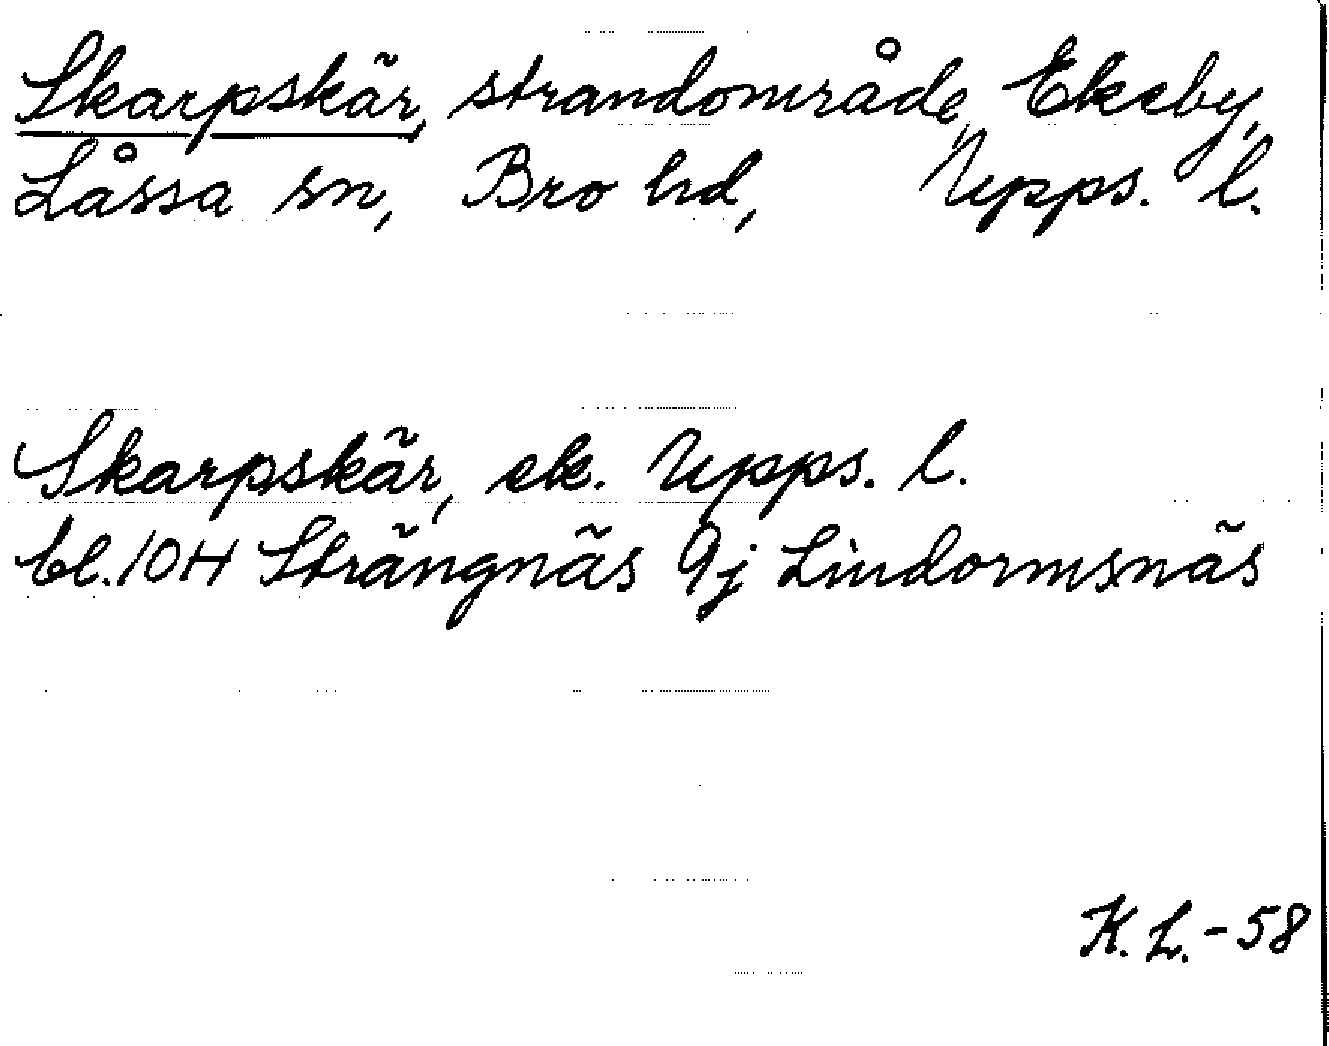 Skarpskär, strandområde, Ekeby,
Låssa sn, Bro hd, Upps. l.
Skarpskär, ek. Upps. l.
bl. 10H Strängnäs 9j Lindormsnäs
K. L. - 58